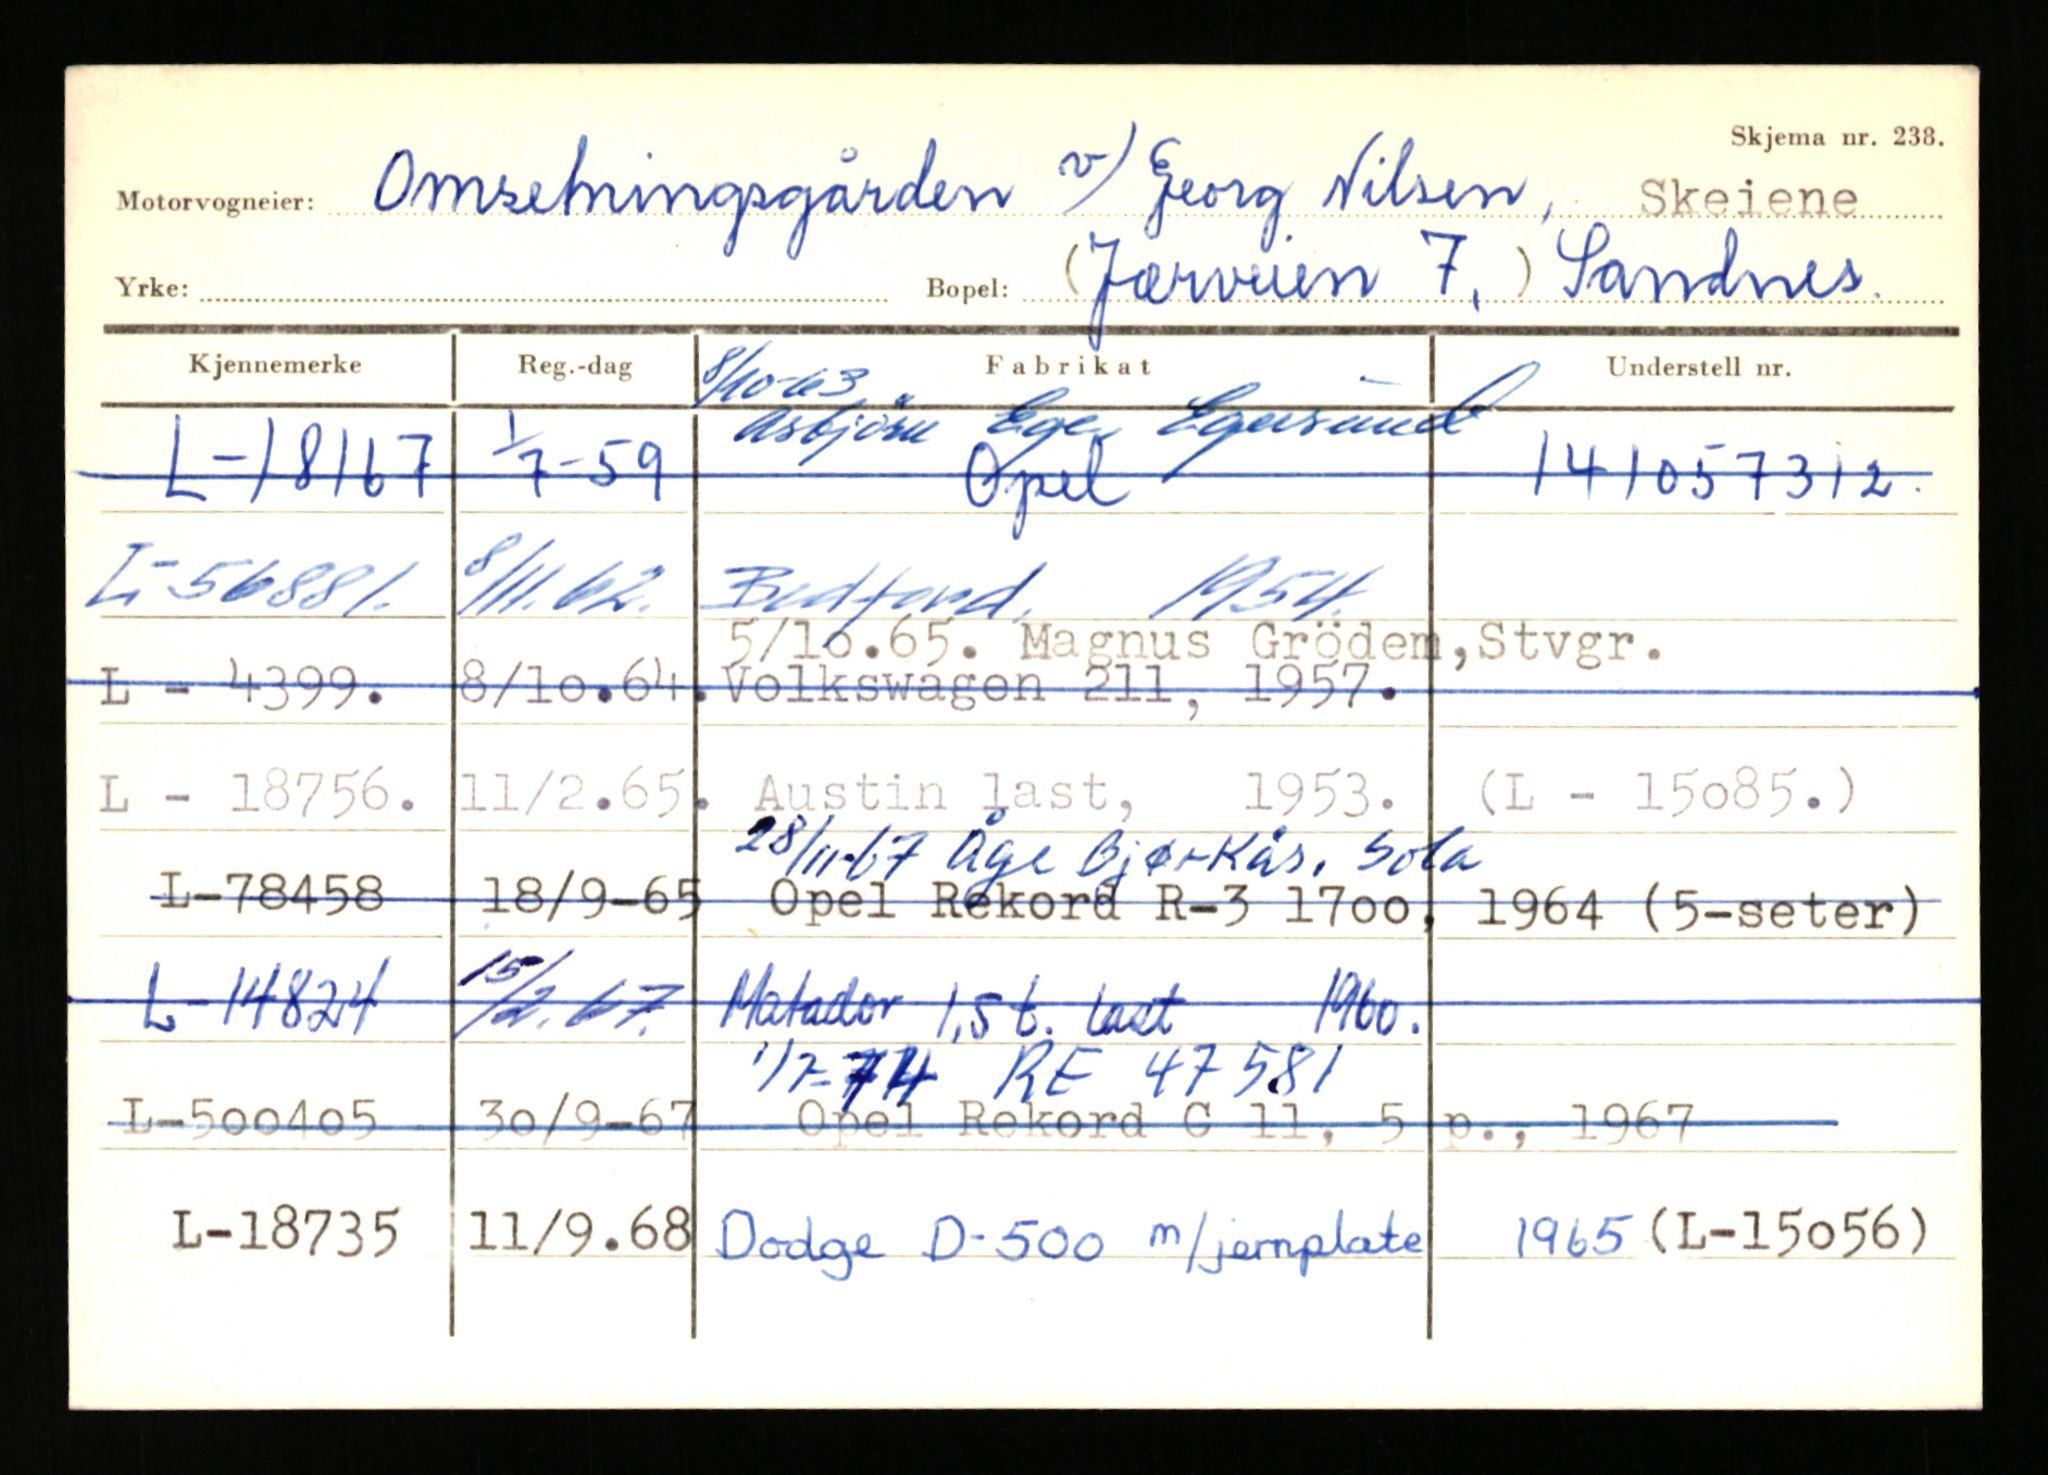 Skjema nr. 238.
Motorvogneier: Omsetningsgården v/ Georg Nilsen, Skeiene
Yrke: Bopel: (Jærveien 7,) Sandnes.
Kjennemerke Reg.-dag Fabrikat Understell nr.
8/10-63
Asbjörn Ege, Egersund
L-18167 1/7-59 Opel 141057312.
L-56881. 8/11.62. Bedford, 1954.
5/10.65. Magnus Grödem, Stvgr.
L - 4399. 8/10.64. Volkswagen 211, 1957.
L - 18756. 11/2.65. Austin last, 1953. (L - 15085.)
28/11-67 Åge Bjørkås, Sola
L-78458 18/9-65 Opel Rekord R-3 1700, 1964 (5-seter)
L-14824 15/2.67. Matador 1,5 t. last 1960.
1/7-74 RE 47581
L-500405 30/9-67 Opel Rekord C 11, 5 p., 1967
L-18735 11/9.68 Dodge D-500 m/jernplate 1965 (L-15056)